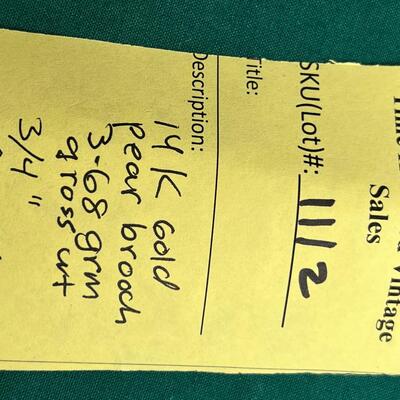 Vintage
Sales
SKU(Lot)#: 11/2
Title:
Description:
14 K Gold
pear brooch
3.68 grm
gross wt
3/4 "